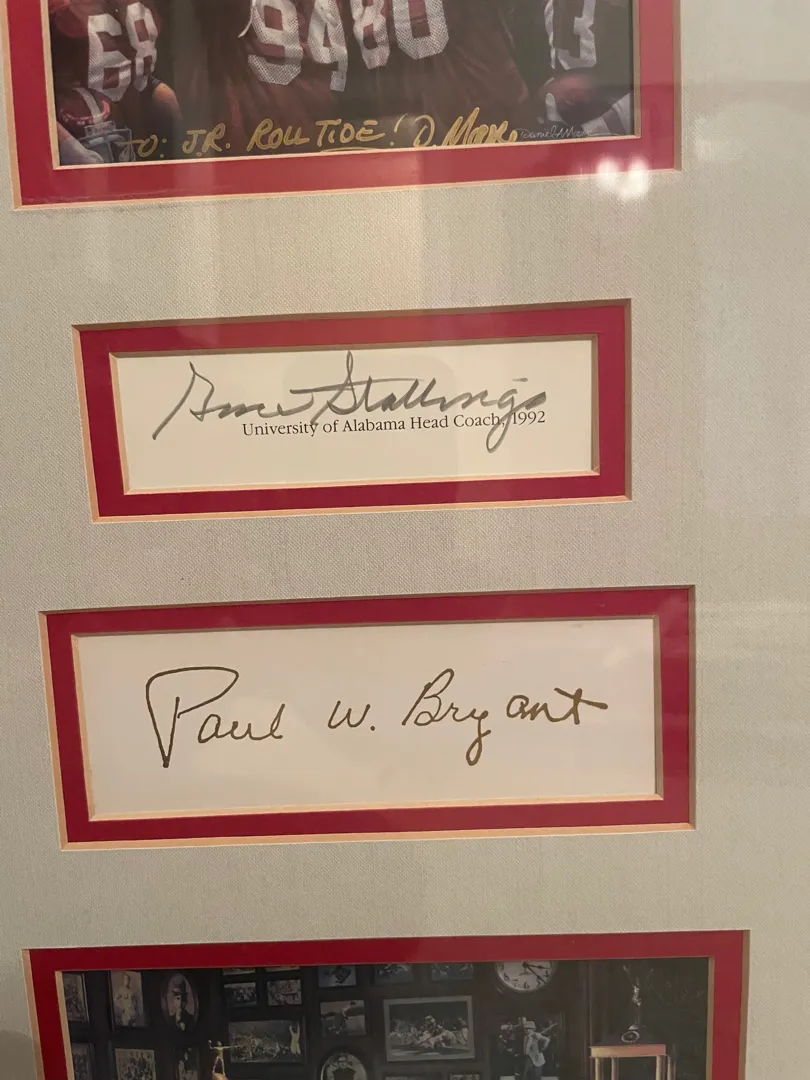 68 94 80 3
TO: J.R. ROLL TIDE! D. Moore Daniel A. Moore
Gene Stallings
University of Alabama Head Coach, 1992
Paul W. Bryant